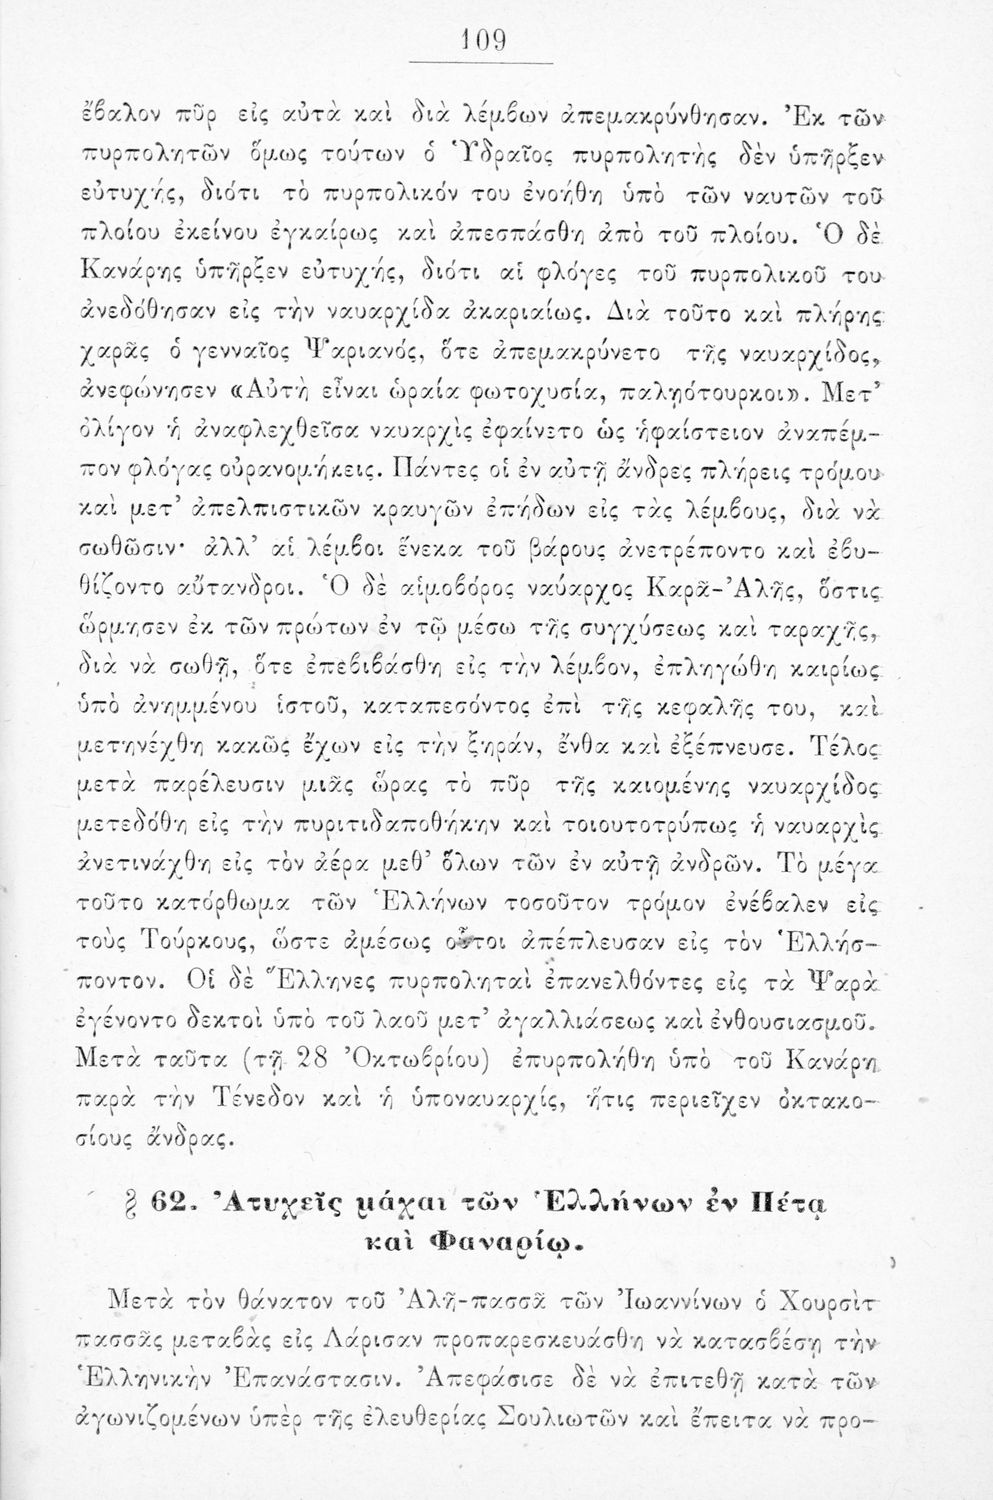 109
ἔβαλον πῦρ εἰς αὐτὰ καὶ διὰ λέμβων ἀπεμακρύνθησαν. Ἐκ τῶν
πυρπολητῶν ὅμως τούτων ὁ Ὑδραῖος πυρπολητὴς δὲν ὑπῆρξεν
εὐτυχής, διότι τὸ πυρπολικόν του ἐνοήθη ὑπὸ τῶν ναυτῶν τοῦ
πλοίου ἐκείνου ἐγκαίρως καὶ ἀπεσπάσθη ἀπὸ τοῦ πλοίου. Ὁ δὲ
Κανάρης ὑπῆρξεν εὐτυχής, διότι αἱ φλόγες τοῦ πυρπολικοῦ του
ἀνεδόθησαν εἰς τὴν ναυαρχίδα ἀκαριαίως. Διὰ τοῦτο καὶ πλήρης
χαρᾶς ὁ γενναῖος Ψαριανός, ὅτε ἀπεμακρύνετο τῆς ναυαρχίδος,
ἀνεφώνησεν «Αὐτὴ εἶναι ὡραία φωτοχυσία, παλῃότουρκοι». Μετ’
ὀλίγον ἡ ἀναφλεχθεῖσα ναυαρχὶς ἐφαίνετο ὡς ἡφαίστειον ἀναπέμ-
πον φλόγας οὐρανομήκεις. Πάντες οἱ ἐν αὐτῇ ἄνδρες πλήρεις τρόμου
καὶ μετ’ ἀπελπιστικῶν κραυγῶν ἐπήδων εἰς τὰς λέμβους, διὰ νὰ
σωθῶσιν· ἀλλ’ αἱ λέμβοι ἕνεκα τοῦ βάρους ἀνετρέποντο καὶ ἐβυ-
θίζοντο αὔτανδροι. Ὁ δὲ αἱμοβόρος ναύαρχος Καρᾶ-Ἀλῆς, ὅστις
ὥρμησεν ἐκ τῶν πρώτων ἐν τῷ μέσω τῆς συγχύσεως καὶ ταραχῆς,
διὰ νὰ σωθῇ, ὅτε ἐπεβιβάσθη εἰς τὴν λέμβον, ἐπληγώθη καιρίως
ὑπὸ ἀνημμένου ἱστοῦ, καταπεσόντος ἐπὶ τῆς κεφαλῆς του, καὶ
μετηνέχθη κακῶς ἔχων εἰς τὴν ξηράν, ἔνθα καὶ ἐξέπνευσε. Τέλος
μετὰ παρέλευσιν μιᾶς ὥρας τὸ πῦρ τῆς καιομένης ναυαρχίδος
μετεδόθη εἰς τὴν πυριτιδαποθήκην καὶ τοιουτοτρόπως ἡ ναυαρχὶς
ἀνετινάχθη εἰς τὸν ἀέρα μεθ’ ὅλων τῶν ἐν αὐτῇ ἀνδρῶν. Τὸ μέγα
τοῦτο κατόρθωμα τῶν Ἑλλήνων τοσοῦτον τρόμον ἐνέβαλεν εἰς
τοὺς Τούρκους, ὥστε ἀμέσως οὗτοι ἀπέπλευσαν εἰς τὸν Ἑλλήσ-
ποντον. Οἱ δὲ Ἕλληνες πυρπολῃταὶ ἐπανελθόντες εἰς τὰ Ψαρὰ
ἐγένοντο δεκτοὶ ὑπὸ τοῦ λαοῦ μετ’ ἀγαλλιάσεως καὶ ἐνθουσιασμοῦ.
Μετὰ ταῦτα (τῇ 28 Ὀκτωβρίου) ἐπυρπολήθη ὑπὸ τοῦ Κανάρη
παρὰ τὴν Τένεδον καὶ ἡ ὑποναυαρχίς, ἥτις περιεῖχεν ὀκτακο-
σίους ἄνδρας.
§ 62. Ἀτυχεῖς μάχαι τῶν Ἑλλήνων ἐν Πέτᾳ
καὶ Φαναρίῳ.
Μετὰ τὸν θάνατον τοῦ Ἀλῆ-πασσᾶ τῶν Ἰωαννίνων ὁ Χουρσὶτ
πασσᾶς μεταβὰς εἰς Λάρισαν προπαρεσκευάσθη νὰ κατασβέσῃ τὴν
Ἑλληνικὴν Ἐπανάστασιν. Ἀπεφάσισε δὲ νὰ ἐπιτεθῇ κατὰ τῶν
ἀγωνιζομένων ὑπὲρ τῆς ἐλευθερίας Σουλιωτῶν καὶ ἔπειτα νὰ προ-